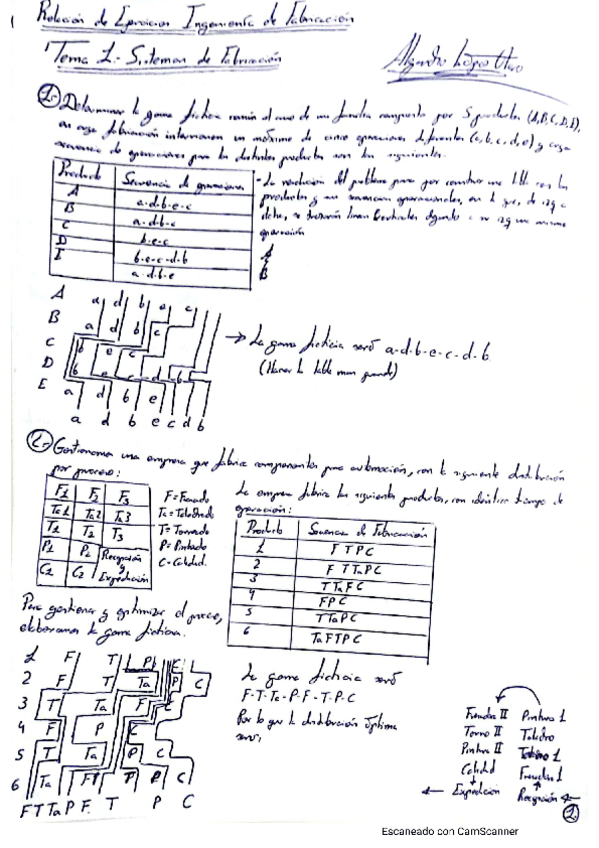 1 Relación de Ejercicios Ingeniería de Fabricación
Tema 1.- Sistemas de Fabricación
Alejandro López
1.- Determinar la gama ficticia para el caso de una familia compuesta por 5 productos (A,B,C,D,E),
en cuya fabricación intervienen un máximo de cinco operaciones diferentes (a,b,c,d,e) y cuya
secuencia de operaciones para los distintos productos son las siguientes.
Producto Secuencia de operaciones
A a-d-b-e-c
B a-d-b-c
C b-e-c
D b-e-c-d-b
E a-d-b-e
- La resolución del problema pasa por construir una tabla con los
productos y sus secuencias operacionales, en la que, de izq a
dcha, se trazarán líneas verticales dejando a su izq una misma
operación
A a d b e c
B a d b c
C b e c
D b e c d b
E a d b e
a d b e c d b
→ La gama ficticia será a-d-b-e-c-d-b
(Hacer la tabla mas grande)
2.- Gestionamos una empresa que fabrica componentes para automoción, con la siguiente distribución
por proceso:
F1 F2 F3
Ta1 Ta2 Ta3
T1 T2 T3
P1 P2 Recepción
y
C1 C2 Expedición
F= Fresado
Ta= Taladrado
T= Torneado
P= Pintado
C= Calidad
La empresa fabrica los siguientes productos, con idéntico tiempo de
operación:
Producto Secuencia de Fabricación
1 F T P C
2 F T Ta P C
3 T Ta F C
4 F P C
5 T Ta P C
6 Ta F T P C
Para gestionar y optimizar el proceso,
elaboramos la gama ficticia.
1 F T P C
2 F T Ta P C
3 T Ta F C
4 F P C
5 T Ta P C
6 Ta F T P C
F T Ta P F T P C
La gama ficticia será
F-T-Ta-P-F-T-P-C
Por lo que la distribución óptima
será:
Fresadora II Pintura 1
Torno II Taladro
Pintura II Torno 1
Calidad Fresadora 1
← Expedición Recepción ←
1
Escaneado con CamScanner